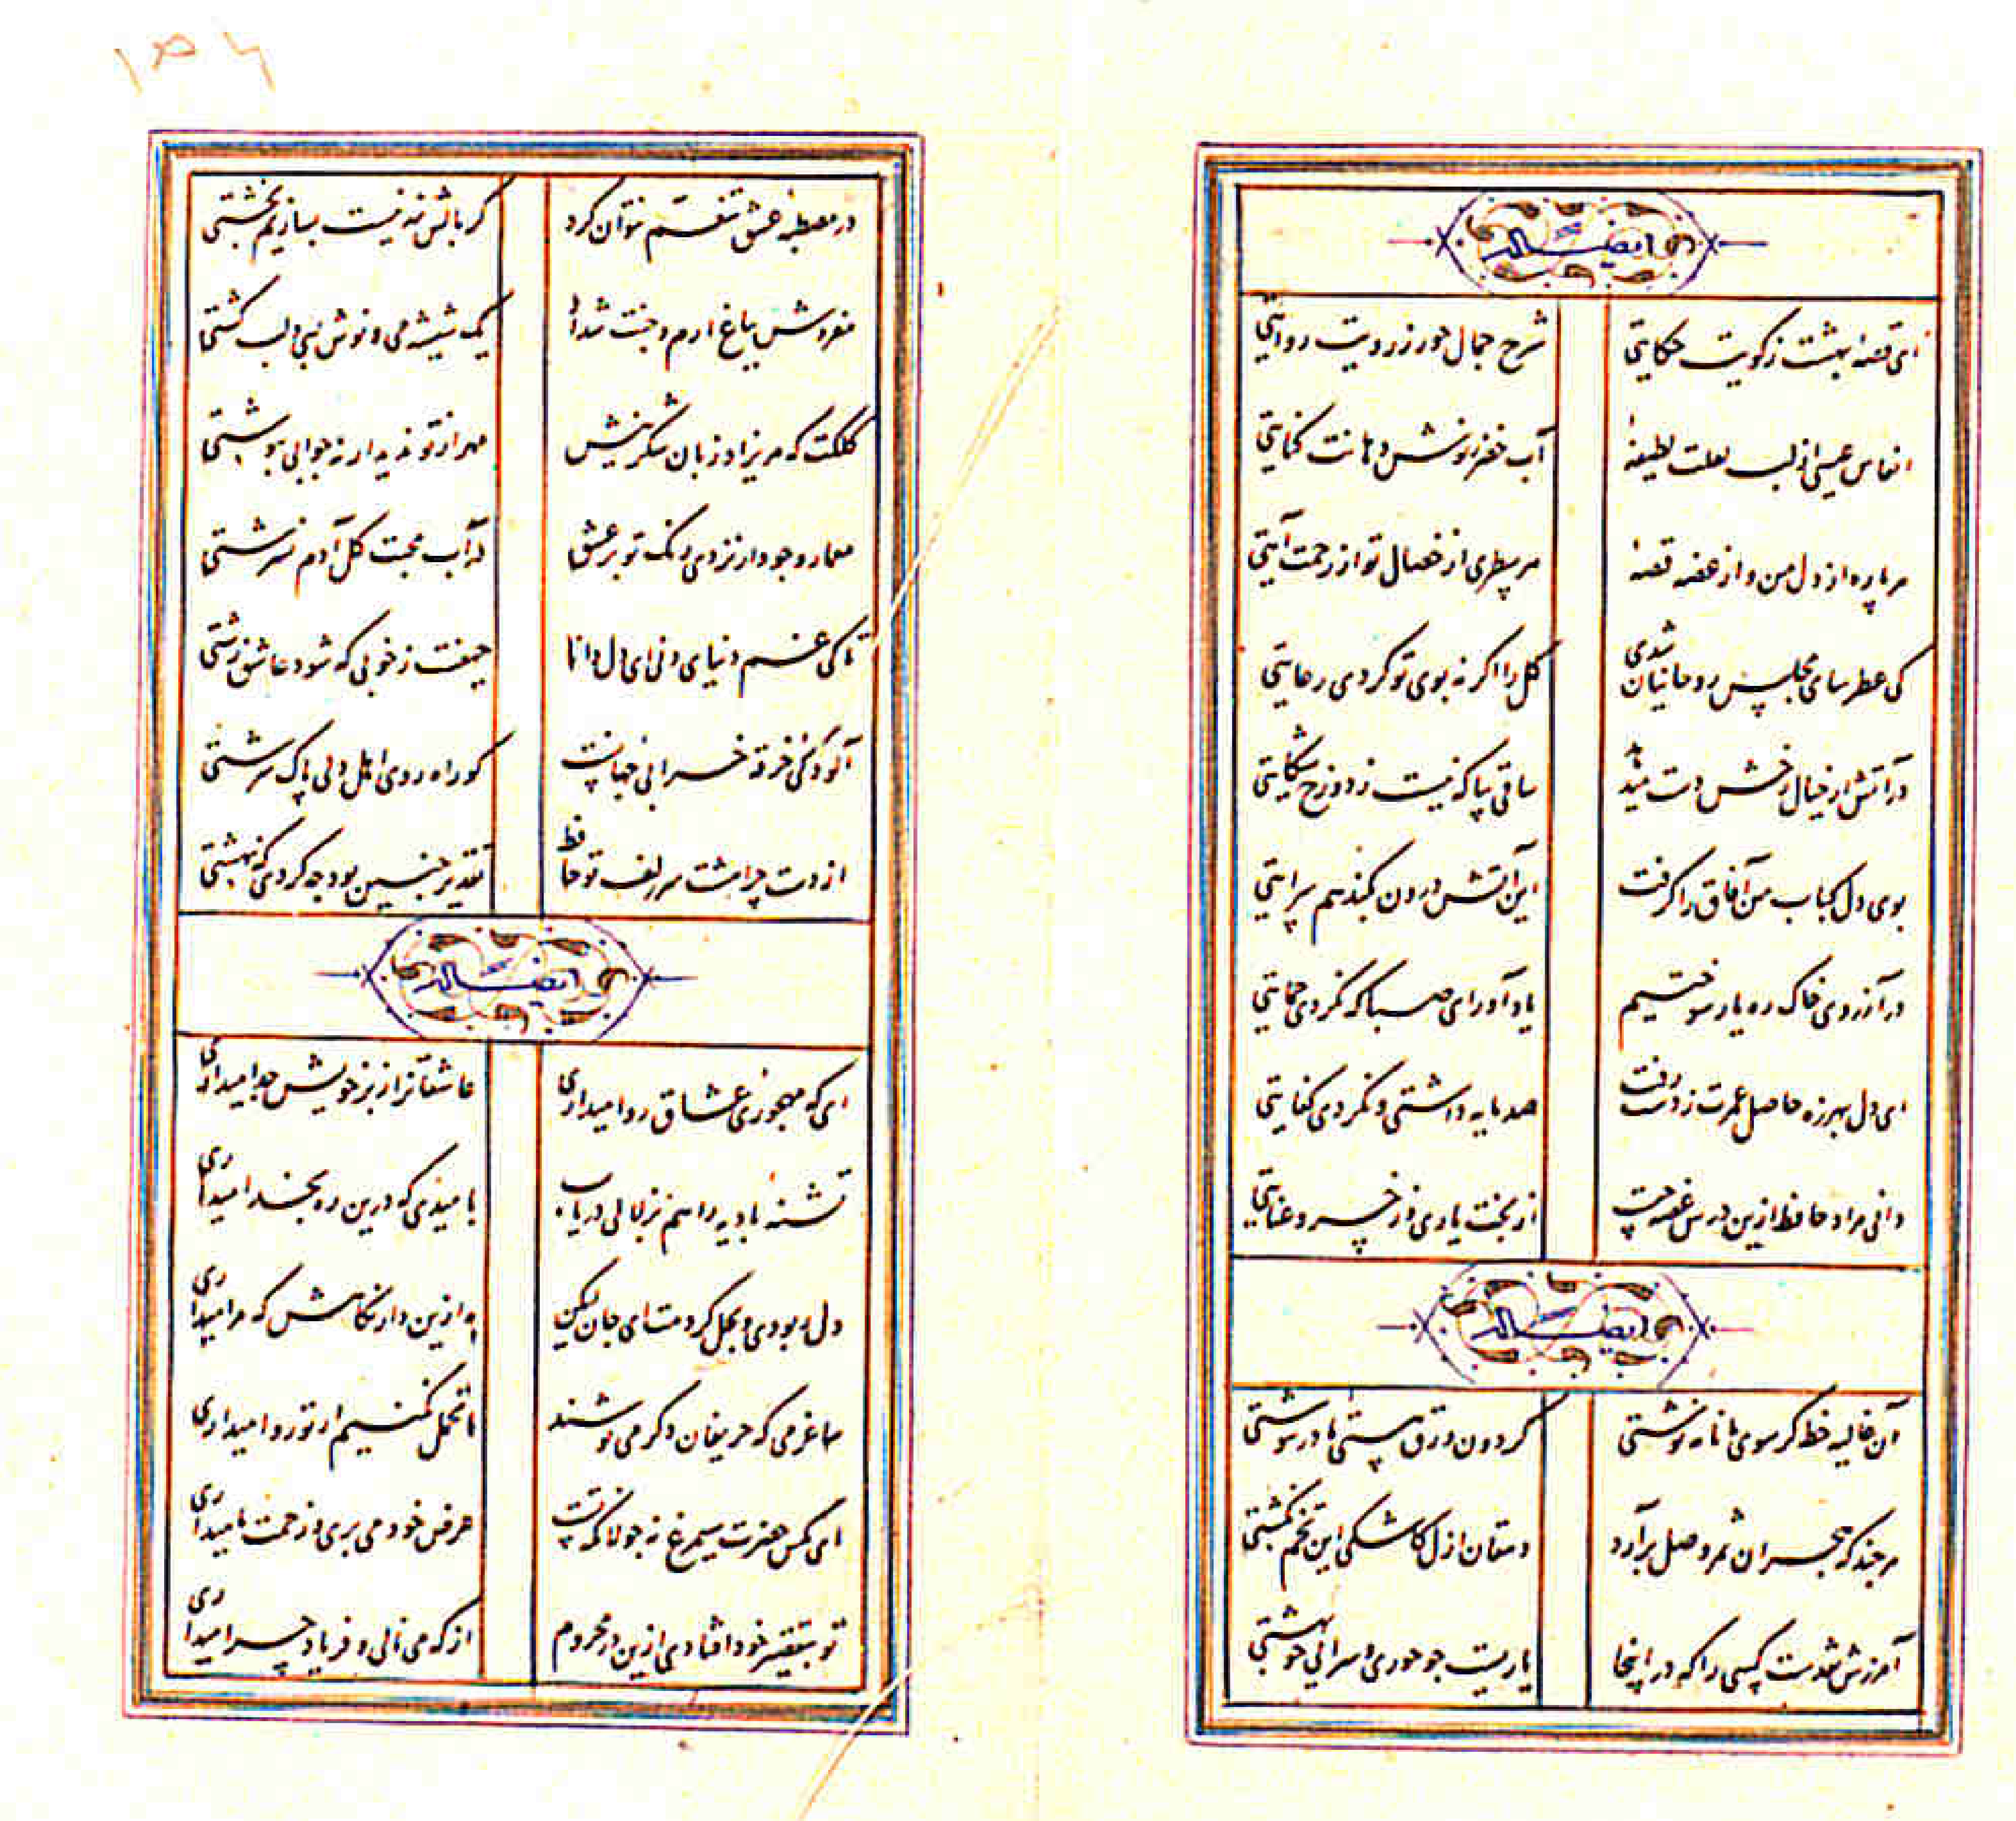 ایضاً له
ای قصهٔ بهشت ز کویت حکایتی شرح جمال حور ز رویت روایتی
انفاس عیسی از لب لعلت لطیفهٔ آب خضر ز نوش دهانت کنایتی
هر پاره از دل من و از غصه قصهٔ هر سطری از خصال تو از رحمت آیتی
کی عطرسای مجلس روحانیان شدی کل را اکر نه بوی تو کردی رعایتی
در آتش ار خیال رخش دست میدهد ساقی بیا که نیست ز دوزخ شکایتی
بوی دل کباب من آفاق را کرفت این آتش درون بکند هم سرایتی
در آرزوی خاک ره یار سوختیم یاد آور ای صبا که نکردی حمایتی
ای دل بهرزه حاصل عمرت ز دست رفت صد مایه داشتی و نکردی کفایتی
دانی مراد حافظ ازین درس غصه چیست از بخت یاری و از خسرو عنایتی
ایضاً له
آن غالیه خط کر سوی ما نامه نوشتی کردون ورق هستی ما درنوشتی
هر چند که هجران ثمر وصل برآرد دهقان ازل کاشکی این تخم نکشتی
آمرزش نقدست کسی را که در اینجا یاریست چو حوری و سرایی چو بهشتی
۱۵۶
در مصطبهٔ عشق تنعم نتوان کرد کر بالش زر نیست بسازیم بخشتی
مفروش بباغ ارم و جنت شداد یک شیشه می و نوش لبی و لب کشتی
کلکت که مریزاد زبان شکرینش مهر از تو ندید ار نه جوابی بنوشتی
معمار وجود ار نزدی رنک تو بر عشق در آب محبت کل آدم نسرشتی
تا کی غم دنیای دنی ای دل دانا حیفست ز خوبی که شود عاشق زشتی
آلودکی خرقه خرابی جهانست کو راه روی اهل دلی پاک سرشتی
از دست چرا هشت سر زلف تو حافظ تقدیر چنین بود چه کردی که نهشتی
ایضاً له
ای که مهجوری عشاق روا میداری عاشقانرا ز بر خویش جدا میداری
تشنه بادیه را هم بزلالی دریاب بامیدی که درین ره بخدا میداری
دل ربودی و بحل کردمت ای جان لیکن به ازین دار نکاهش که مرا میداری
ساغر می که حریفان دکر می نوشند ما تحمل نکنیم ار تو روا میداری
ای مکس حضرت سیمرغ نه جولانکه تست عرض خود می بری و زحمت ما میداری
تو بتقصیر خود افتادی ازین در محروم از که می نالی و فریاد چرا میداری